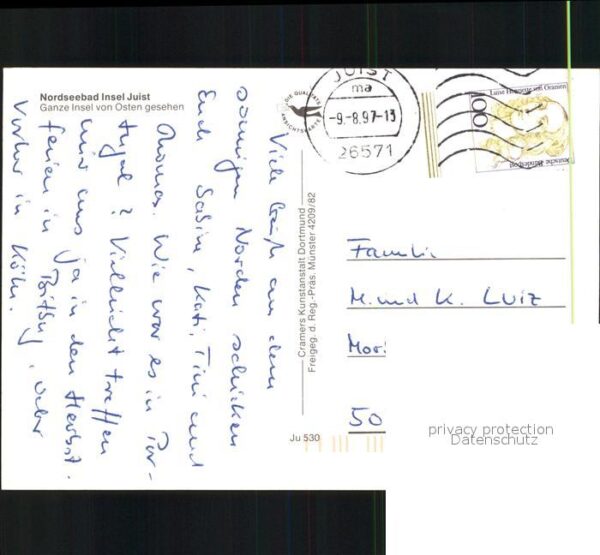 Nordseebad Insel Juist
Ganze Insel von Osten gesehen
DIE QUALITÄTS
ANSICHTSKARTE
JUIST
ma
-9.-8.97-13
26571
100
Luise Henriette von Oranien
Deutsche Bundespost
Viele Grüße aus dem
sonnigen Norden schicken
Euch Sabine, Kati, Timi und
Thomas. Wie war es in Por-
tugal? Vielleicht treffen
wir uns ja in den Herbst-
ferien in
, oder
Vorher in Köln.
Cramers Kunstanstalt Dortmund
Freigeg. d. Reg.-Präs. Münster 4209/82
Ju 530
Familie
M. und K. Luiz
Mori
50
privacy protection
Datenschutz